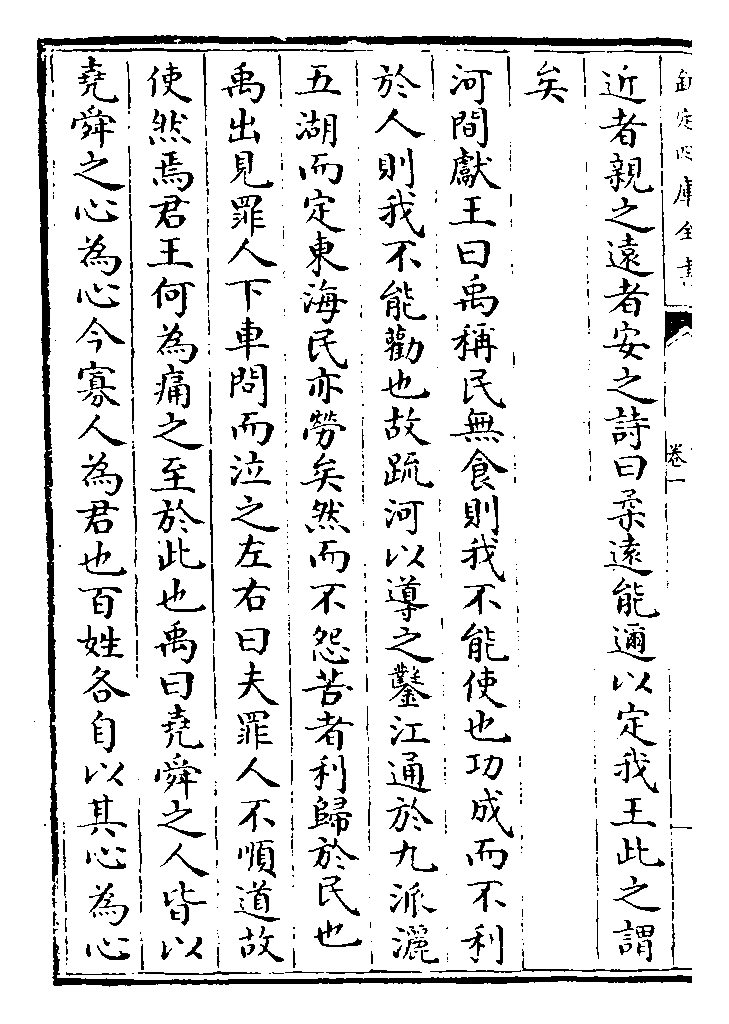 欽定四庫全書
卷一
近者親之遠者安之詩曰柔遠能邇以定我王此之謂
矣
河間獻王曰禹稱民無食則我不能使也功成而不利
於人則我不能勸也故疏河以導之鑿江通於九派灑
五湖而定東海民亦勞矣然而不怨苦者利歸於民也
禹出見罪人下車問而泣之左右曰夫罪人不順道故
使然焉君王何為痛之至於此也禹曰堯舜之人皆以
堯舜之心為心今寡人為君也百姓各自以其心為心